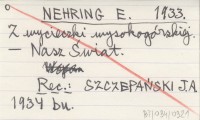 NEHRING E. 1933.
Z wycieczki wysokogórskiej.
— Nasz Świat.
Rec.: SZCZEPAŃSKI J.A.
1934 bn.